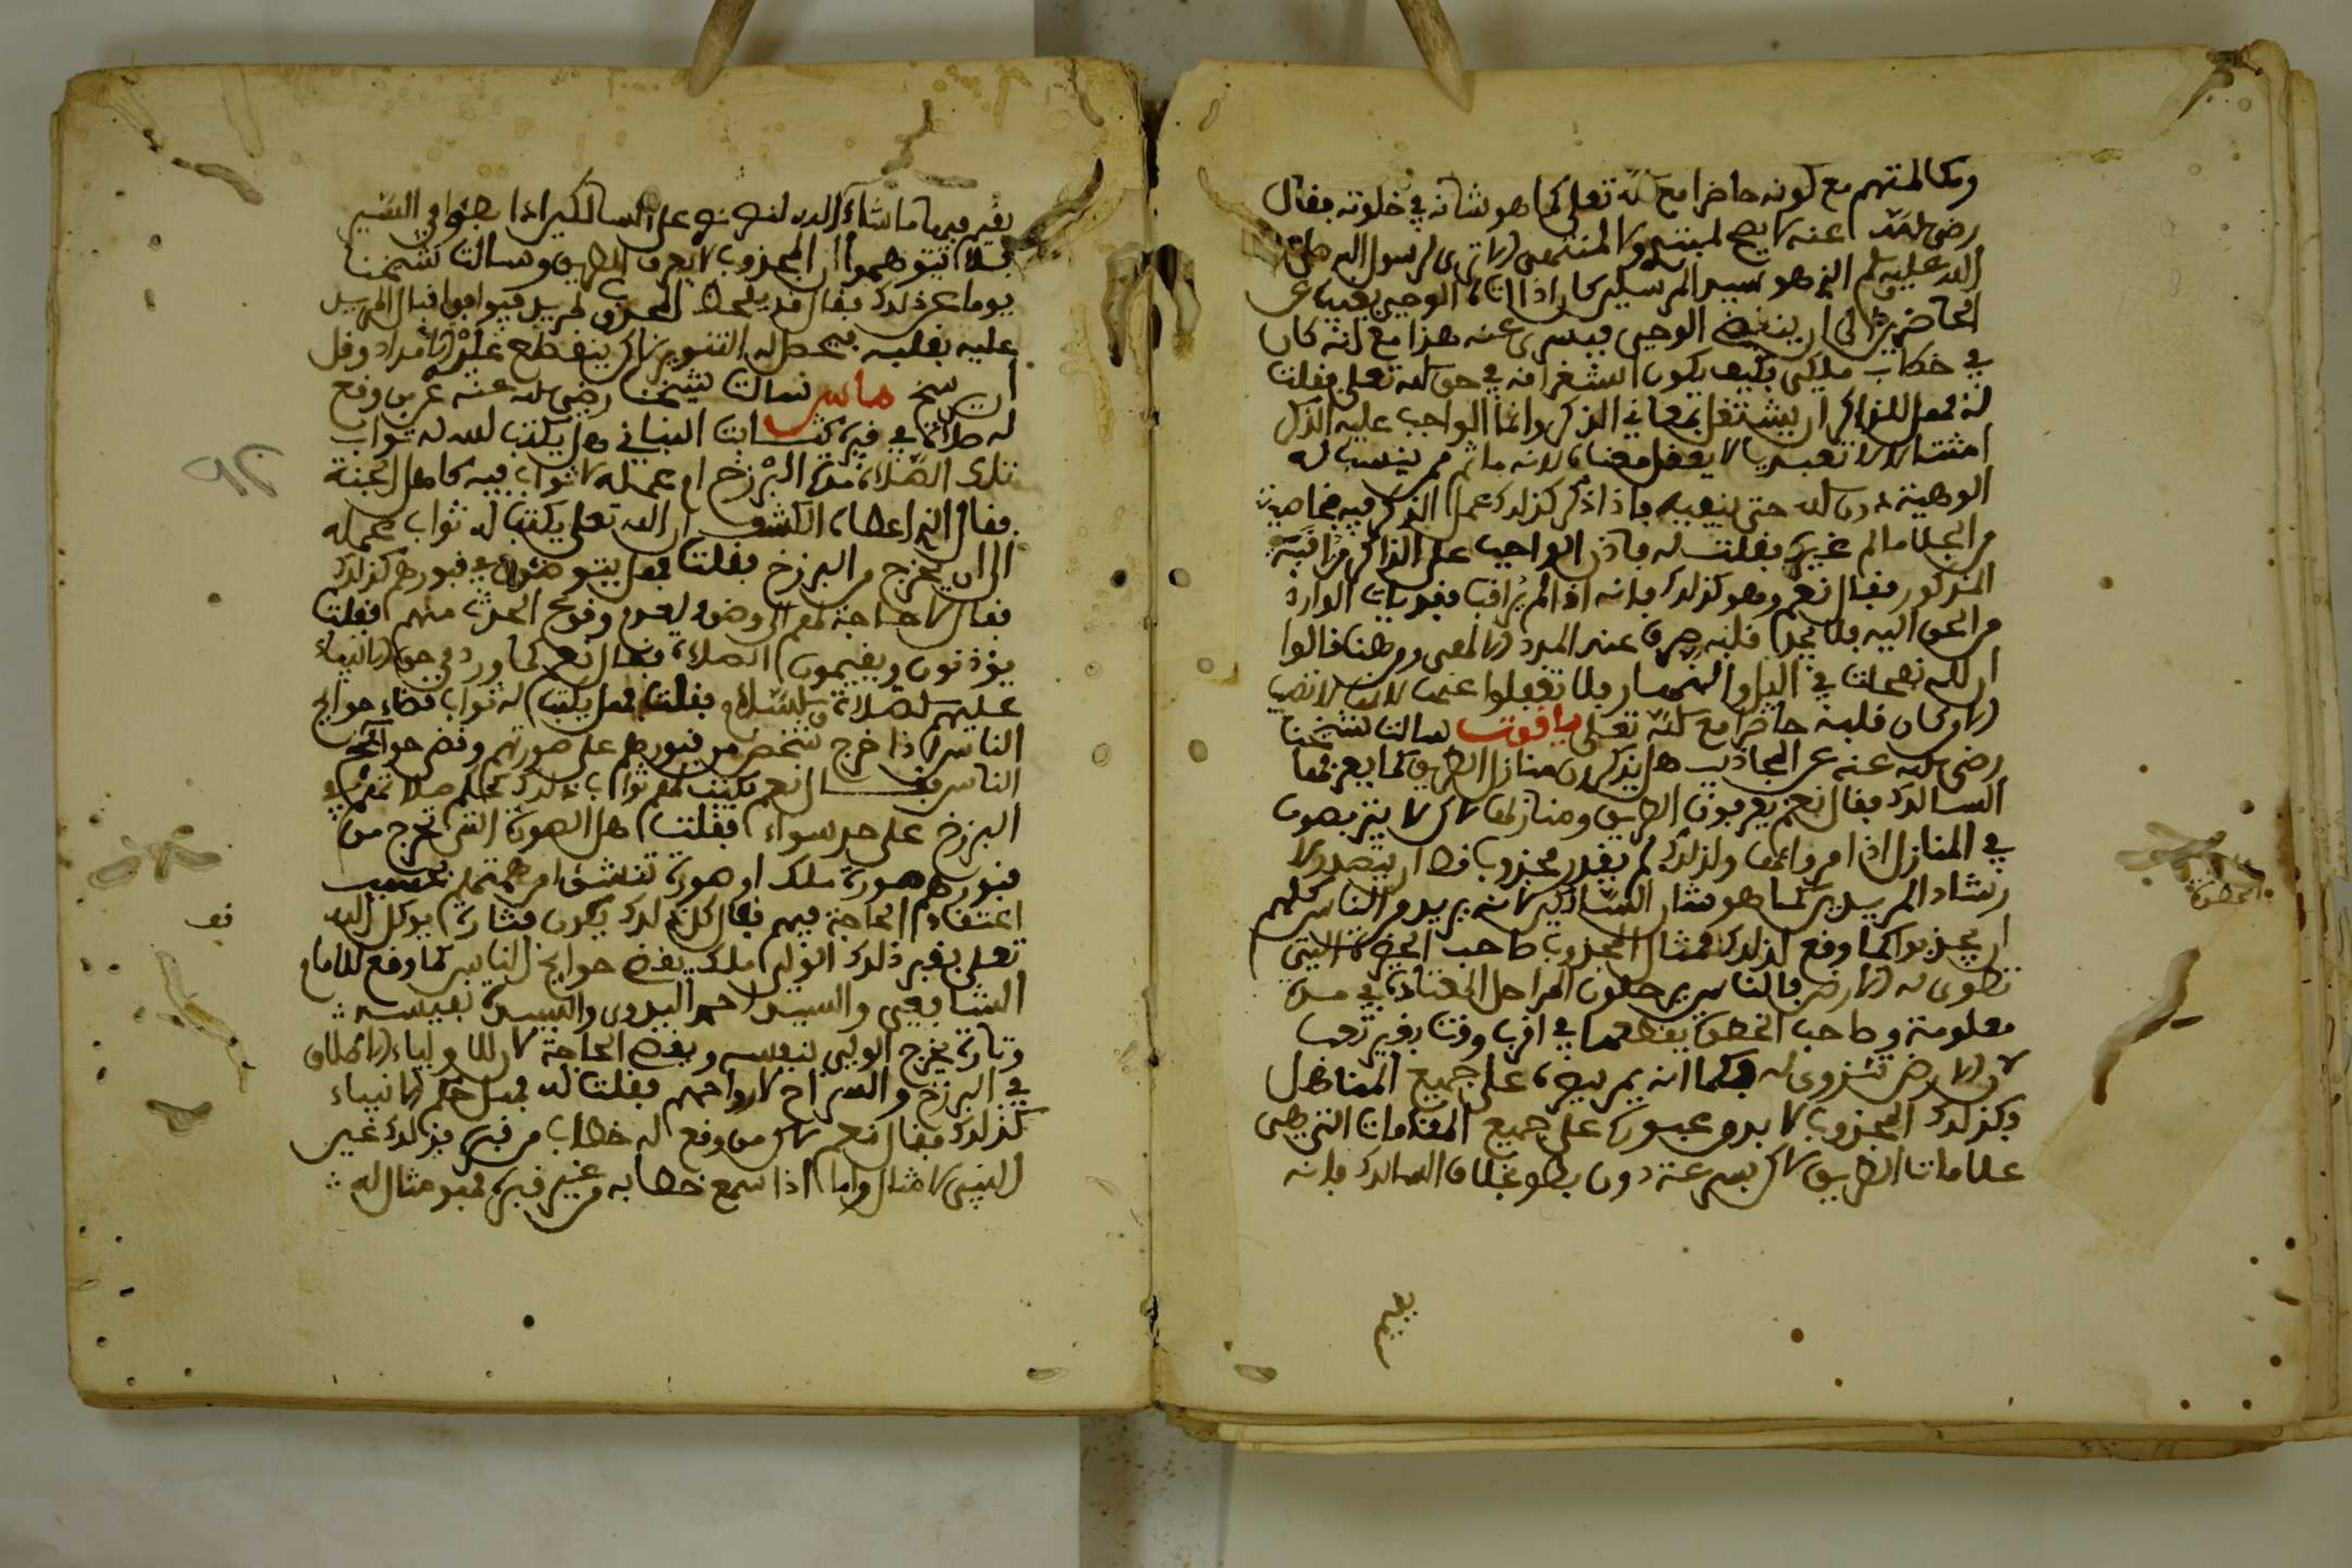 ومكالمتهم مع كونه حاضرا مع الله تعلى كما هو شانه في خلوته فقال
رضي الله عنه لا يصح لمبتد ولا لمنتهى الا ترى لرسول الله صلى
الله عليه وسلم الذي هو سيد المرسلين كان اذا اتاه الوحي يغيب عن
الحاضرين الى ان ينقضي الوحي فيسرى عنه هذا مع انه كان
في خطاب ملكي فكيف يكون استغراقه في حق الله تعلى فقلت
له فهل للذاكر ان يشتغل بمعاني الذكر وانما الواجب عليه الذكر
امتثالا لا تعبدا لا يعقل معناه لانه ما ثم من ينسب له
الوهية دون الله حتى ينفيه فاذا ذكر كذلك عمل الذكر فيه بخاصية
من الجلا ما لم غيره فقلت له فاذن الواجب على الذاكر مراقبة
المذكور فقال نعم وهو كذلك فانه اذا لم يراقب ففويات الوارد
من الحق اليه فلا يجد قلبه عند المدد ومن هنا قالوا
ان لله نفحات في اليل والنهار فلا تغفلوا عنها لانها لا تصيب
الا من كان قلبه حاضرا مع الله تعلى ياقوت سالت شيخنا
رضي الله عنه عن المجاذيب هل يدركون منازل الطريق كما يعرفها
السالك فقال نعم يعرفون الطريق ومنازلها لاكن لا يتربصون
في المنازل اذا مروا عليها ولذلك لم يقدر مجذوب قط ان يتصدر لا
رشاد المريدين كما هو شان السالكين لانه يريد من الناس كلهم
ان يجذبوا كما وقع له لذلك فمثال المجذوب صاحب الخطوة التي
تطوى له الارض فالناس يرحلون المراحل المعتادة في مدة
معلومة وصاحب الخطوة يقطعها في اقرب وقت بغير تعب
لان الارض تنزوى له فكما انه يمر بيره على جميع المناهل
فكذلك المجذوب لا بد من عبوره على جميع المقامات التي هي
علامات الطريق لاكن بسرعة دون بطو بخلاف السالك فانه
الخطوة
يقيم
يقيم فيها ما شاء الله على السالكين اذا في السير
فلا تتوهموا ان المجذوب لا يعرف الطريق وسالت شيخنا
يوما عن ذلك فقال قد يلحظ المجذوب المريد فيوافق اقبال المريد
عليه بقلبه فيحصل له التنوير لاكن ينقطع عنه الامداد وقل
ان ينتج ماس سالت شيخنا رضي الله عنه عن من وقع
له صلاة في قبره كثابت البناني هل يكتب الله له ثواب
تلك الصلاة مدة البرزخ ام عمله لا ثواب فيه كاهل الجنة
فقال الذي اعطاه الكشف ان الله تعلى يكتب له ثواب عمله
الى ان يخرج من البرزخ فقلت فهل يتوضئون في قبورهم كذلك
فقال لا حاجة لهم الى وضوء لعدم وقوع الحدث منهم فقلت
يؤذنون ويقيمون الصلاة فقال نعم كما ورد في حق الانبياء
عليهم الصلاة والسلام فقلت فهل يكتب له ثواب قضاء حوايج
الناس اذا خرج شخص من قبورهم على صورتهم وقضى حوايج
الناس فقال نعم يكتب لهم ثواب ذلك كحكم صلاتهم في
البرزخ على حد سواء فقلت هل الصورة التي تخرج من
قبورهم صورة ملك او صورة تنشئ من همتهم بحسب
اعتقاد الحاجة فيهم فقال كل ذلك يكون فتارة يوكل الله
تعلى بقبر ذلك الولي ملك يقضي حوايج الناس كما وقع للامام
الشافعي والسيد احمد البدوي والسيدة نفيسة
وتارة يخرج الولي بنفسه ويقضي الحاجة لان للاولياء الاطلاق
في البرزخ والسراح لارواحهم فقلت له فهل حكم الانبياء
كذلك فقال نعم لاكن من وقع له خطاب من قبره فذلك غير
النبي لا مثال واما اذا سمع خطابه من غير قبره فهو مثال له
نف